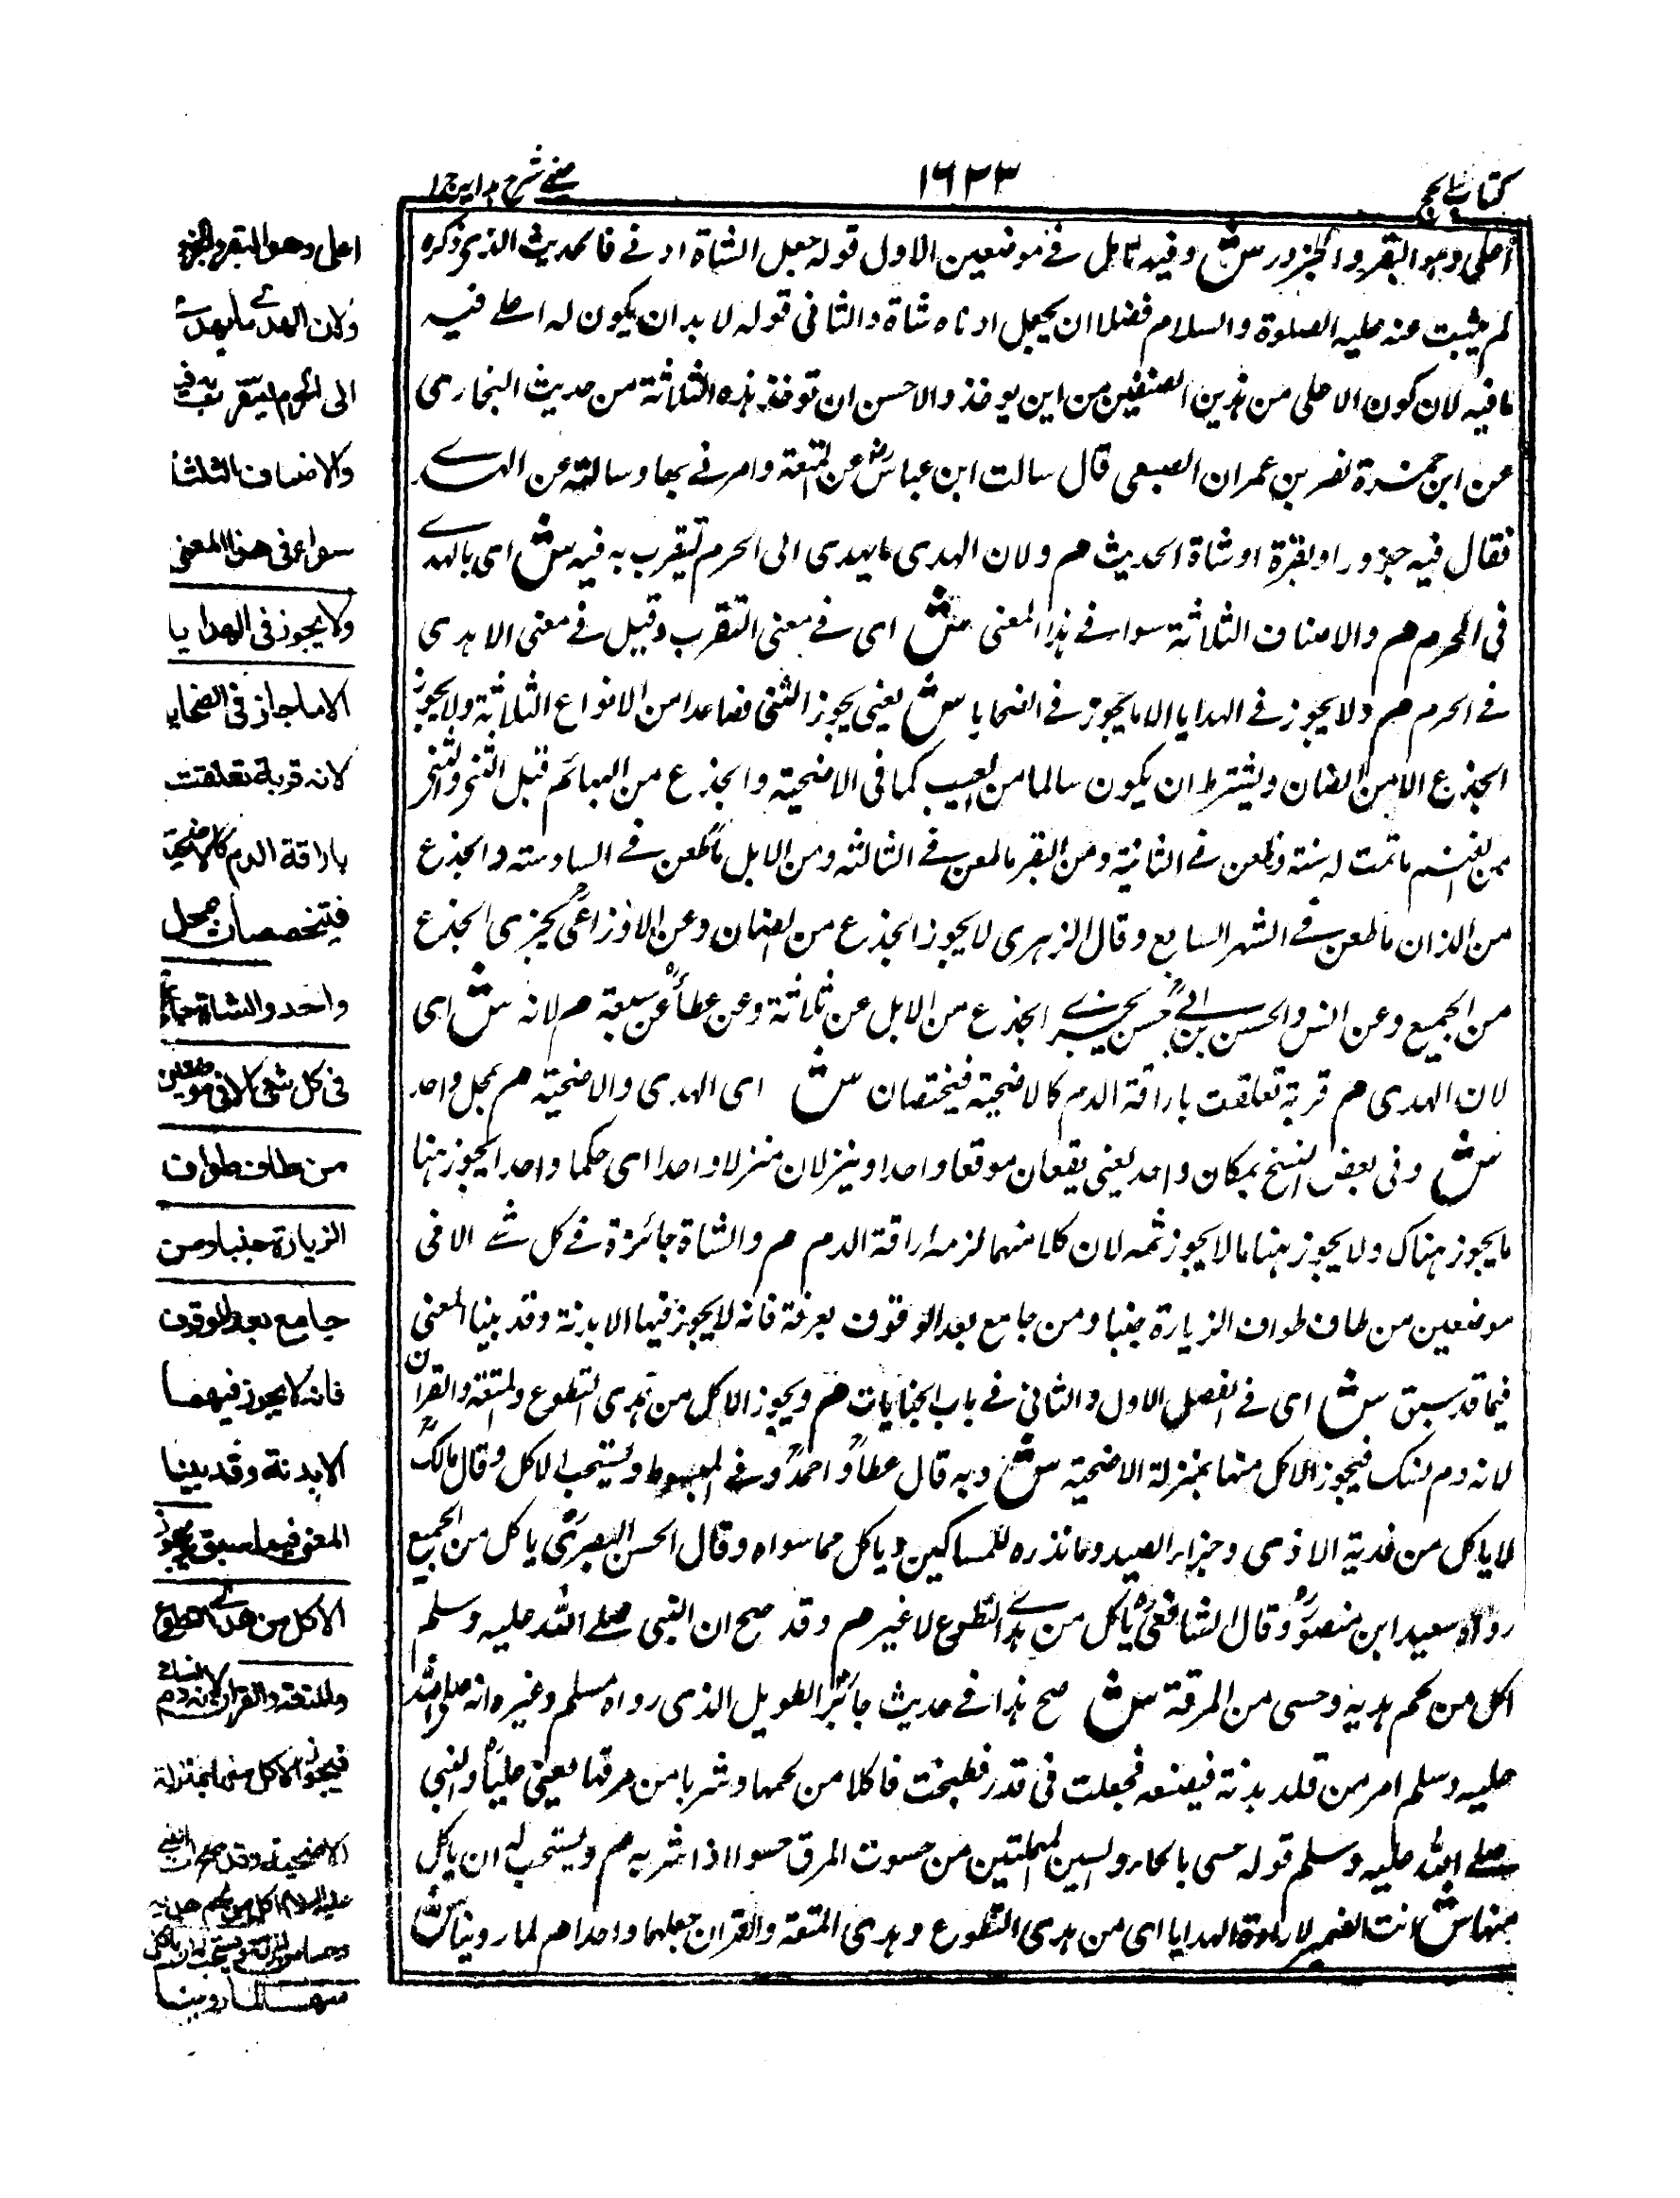 كتاب الحج
١٦٢٣
عينى شرح هدايه ج ١
اعلى وهو البقر والجزور ش وفيه تامل فى موضعين الاول قوله جعل الشاة ادنى فالحديث الذى ذكره
لم يثبت عنه عليه الصلوة والسلام فضلا ان يجعل ادناه شاة والثانى قوله لابد ان يكون له اعلى فيه
ما فيه لان كون الاعلى من هذين الصنفين من اين يوخذ والاحسن ان توخذ هذه الثلاثة من حديث البخارى
عن ابن حمزة نضر بن عمران الضبعى قال سالت ابن عباس رض عن المتعة وامرنى بها وسالته عن الهدى
فقال فيه جزور او بقرة او شاة الحديث هم ولان الهدى ما يهدى الى الحرم ليتقرب به فيه ش اى بالهدى
فى الحرم هم والاصناف الثلاثة سواء فى هذا المعنى ش اى فى معنى التقرب وقيل فى معنى الاهدى
فى الحرم هم ولا يجوز فى الهدايا الا ما يجوز فى الضحايا ش يعنى يجوز الثنى فصاعدا من الانواع الثلاثة ولا يجوز
الجذع الا من الضان ويشترط ان يكون سالما من العيب كما فى الاضحية والجذع من البهائم قبل الثنى والثنى
من الغنم ما تمت له سنة وطعن فى الثانية ومن البقر ما طعن فى الثالثه ومن الابل ما طعن فى السادسته والجذع
من الذان ما طعن فى الشهر السابع وقال الزهرى لا يجوز الجذع من الضان وعن الاوزاعى يجزى الجذع
من الجميع وعن انس والحسن بن ابى حسن يجزى الجذع من الابل عن ثلاثة وعن عطأ عن سبعة هم لانه ش اى
لان الهدى هم قربة تعلقت باراقة الدم كالاضحية فيختصان ش اى الهدى والاضحية هم بمحل واحد
ش وفى بعض النسخ بمكان واحد يعنى يقعان موقعا واحدا وينزلان منزلا واحدا اى حكما واحدا يجوز هنا
ما يجوز هناك ولا يجوز هنا ما لا يجوز ثمه لان كلا منهما لزمه اراقة الدم هم والشاة جائزة فى كل شے الا فى
موضعين من طاف طواف الزيارة جنبا ومن جامع بعد الوقوف بعرفة فانه لا يجوز فيها الا بدنة وقد بينا المعنى
فيما قد سبق ش اى فى الفصل الاول والثانى فى باب الجنايات هم ويجوز الاكل من هدى التطوع والمتعة والقران
لانه دم نسك فيجوز الاكل منها بمنزلة الاضحية ش وبه قال عطأ و احمد وفى المبسوط ويستحب الاكل وقال مالك
لا ياكل من فدية الاذى وجزاء الصيد وما نذره للمساكين وياكل مما سواه وقال الحسن البصرى ياكل من الجميع
رواه سعيد ابن منصور وقال الشافعى ياكل من هدى التطوع لا غير هم وقد صح ان النبى صلى الله عليه وسلم
اكل من لحم هديه وحسى من المرقة ش صح هذا فى حديث جابر الطويل الذى رواه مسلم وغيره انه صلى الله
عليه وسلم امر من قلد بدنة فيصنعه فجعلت فى قدر فطبخت فاكلا من لحمها وشربا من مرقها يعنى عليا والنبى
صلى الله عليه وسلم قوله حسى بالحاء والسين المهملتين من حسوت المرق حسوا اذا شربه هم ويستحب له ان ياكل
منها ش انث الضمير لارادة الهدايا اى من هدى التطوع وهدى المتعة والقران جعلهما واحدا هم لما روينا ش
اعلى وهو البقر والجزور
ولان الهدى ما يهدى
الى الحرم ليتقرب به فيه
والاصناف الثلثة
سواء فى هذا المعنى
ولا يجوز فى الهدايا
الا ما جاز فى الضحايا
لانه قربة تعلقت
باراقة الدم كالاضحية
فيتخصصان بمحل
واحد والشاة جائزة
فى كل شئ الا فى موضعين
من طاف طواف
الزيارة جنبا ومن
جامع بعد الوقوف
فانه لا يجوز فيهما
الا بدنة وقد بينا
المعنى فيما سبق ويجوز
الاكل من هدى التطوع
والمتعة والقران لانه دم نسك
فيجوز الاكل منها بمنزلة
الاضحية وقد صح ان النبى
عليه السلام اكل من لحم هديه
وحسا من المرقة ويستحب له ان ياكل
منها لما روينا